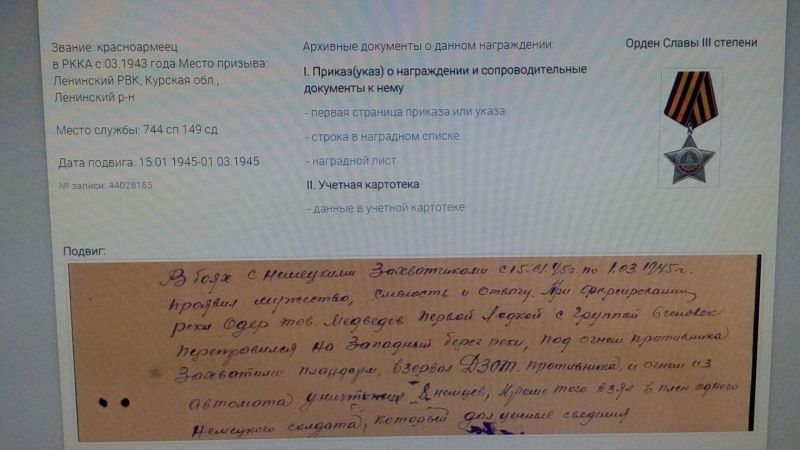 Звание: красноармеец
в РККА с 03.1943 года Место призыва:
Ленинский РВК, Курская обл.,
Ленинский р-н
Место службы: 744 сп 149 сд
Дата подвига: 15.01.1945-01.03.1945
№ записи: 44028185
Архивные документы о данном награждении:
I. Приказ(указ) о награждении и сопроводительные
документы к нему
- первая страница приказа или указа
- строка в наградном списке
- наградной лист
II. Учетная картотека
- данные в учетной картотеке
Орден Славы III степени
Подвиг:
В боях с немецкими захватчиками с 15.01.45г. по 1.03.1945г.
проявил мужество, смелость и отвагу. При форсировании
реки Одер тов. Медведев первой лодкой с группой 6 человек
переправился на западный берег реки, под огнем противника
захватили плацдарм, взорвал ДЗОТ противника, и огнем из
автомата уничтожил 8 немцев, кроме того взял в плен одного
немецкого солдата, который дал ценные сведения